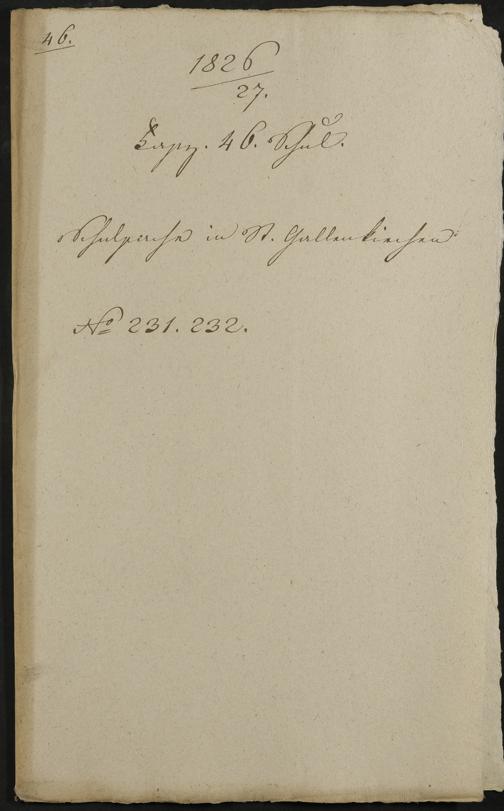 46.
1826
27.
46. Schul.
Schulsache in St. Gallenkirchen
No 231. 232.